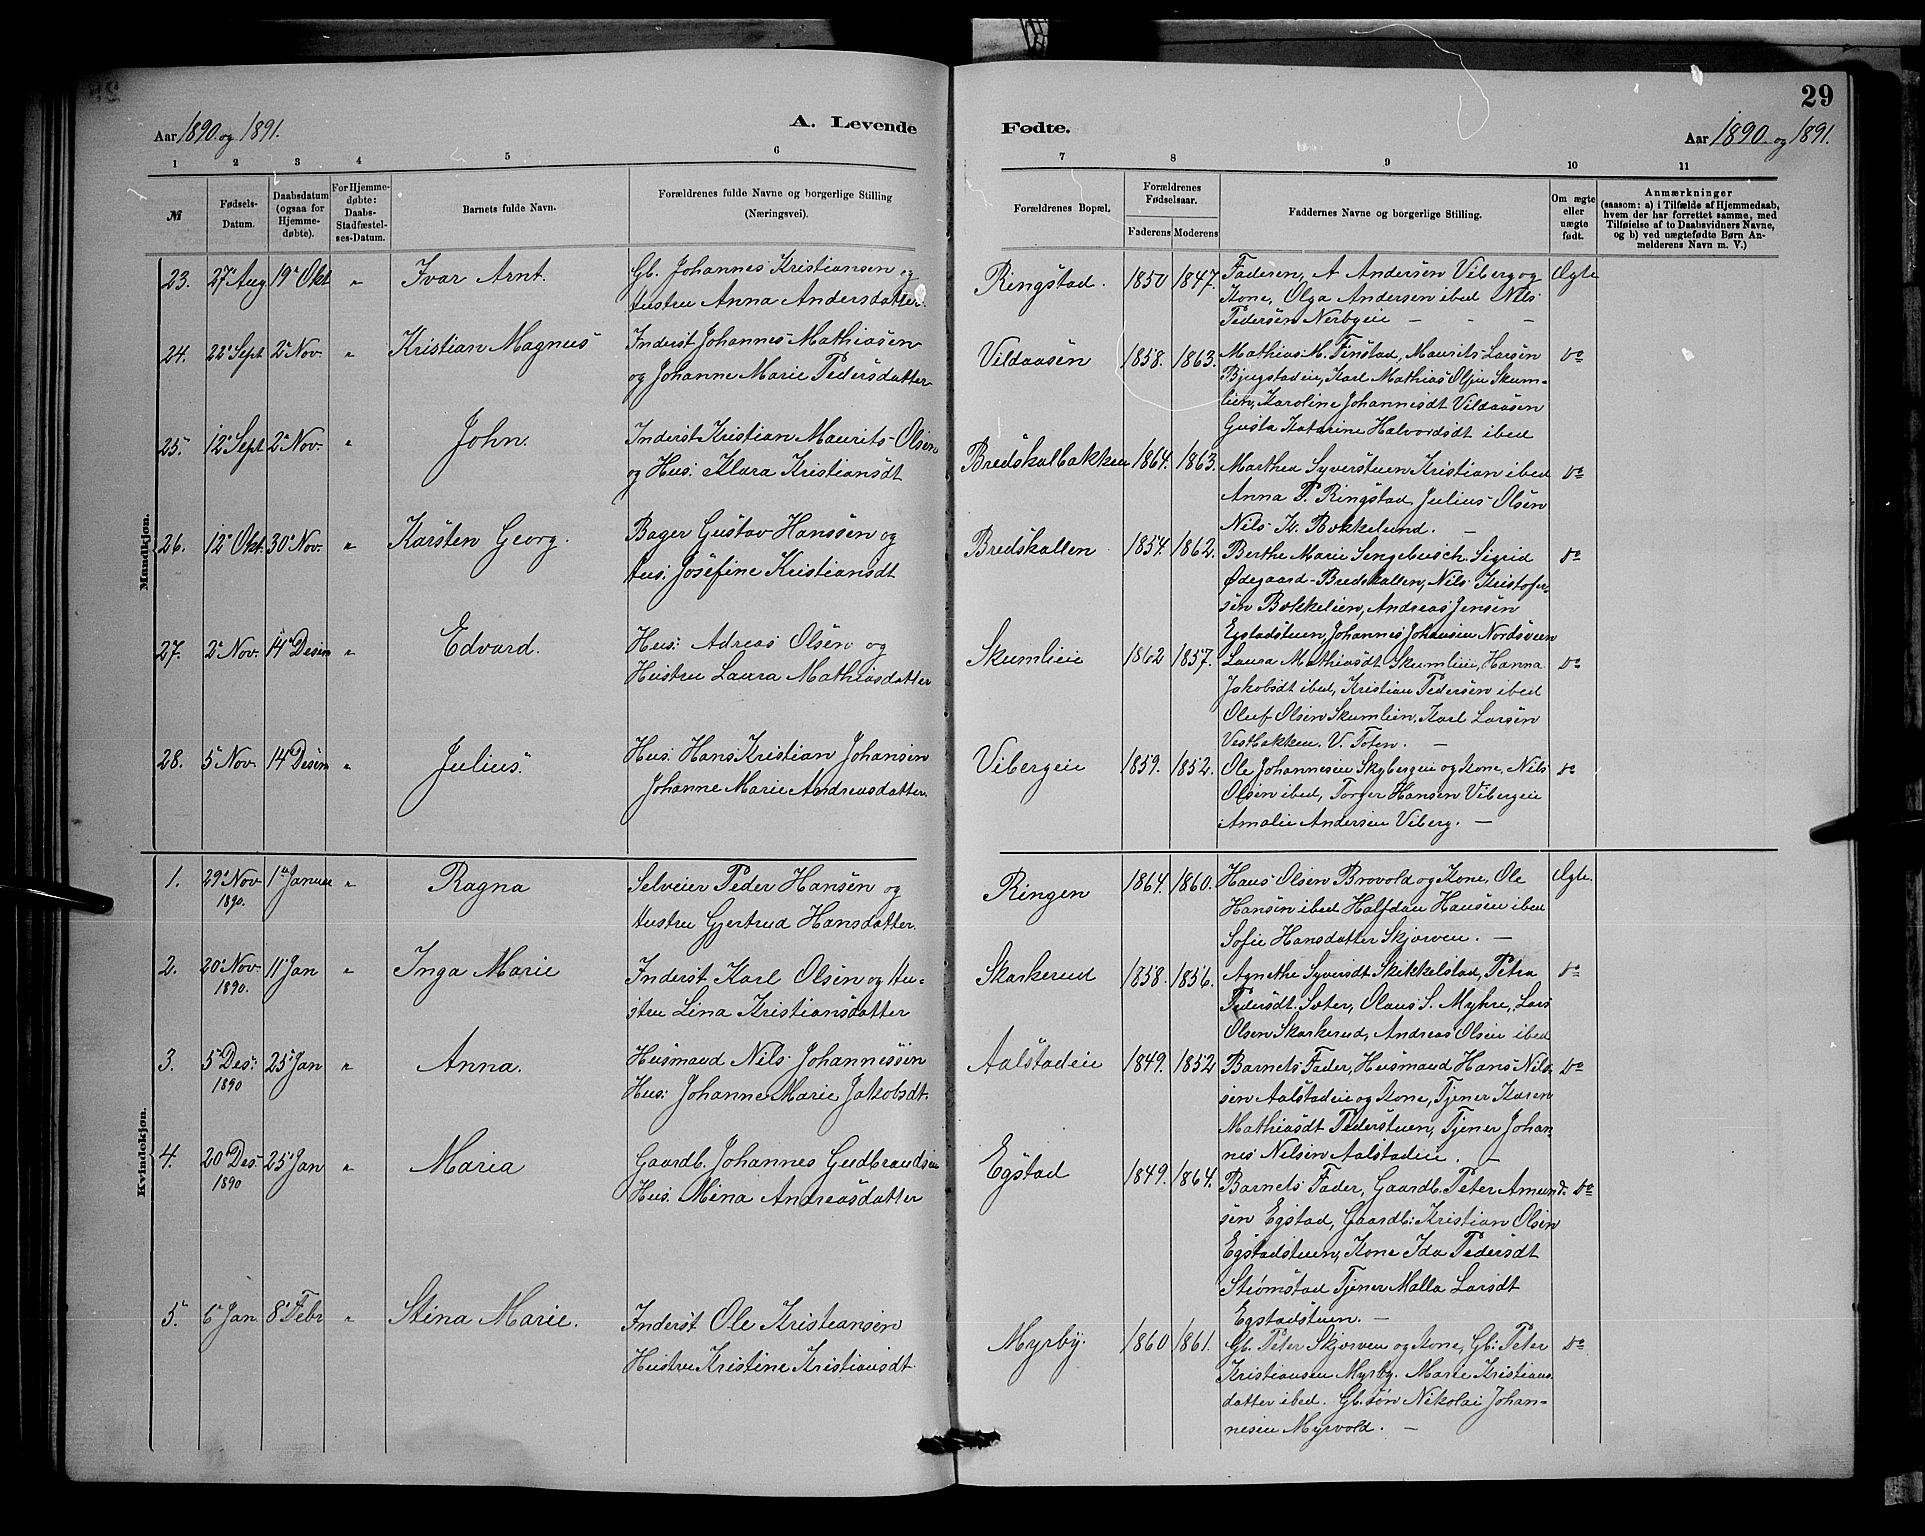 29
Aar 1890 og 1891. A. Levende Fødte. Aar 1890 og 1891.
1 2 3 4 5 6 7 8 9 10 11
№
Fødsels-Datum.
Daabsdatum (ogsaa for Hjemme-døbte).
For Hjemme-døbte: Daabs-Stadfæstel-ses-Datum.
Barnets fulde Navn.
Forældrenes fulde Navne og borgerlige Stilling (Næringsvei).
Forældrenes Bopæl.
Forældrenes Fødselsaar.
Faderens Moderens
Faddernes Navne og borgerlige Stilling.
Om ægte eller uægte født.
Anmærkninger
(saasom: a) i Tilfælde af Hjemmedaab,
hvem der har forrettet samme, med
Tilføielse af to Daabsvidners Navne,
og b) ved uægtefødte Børn An-
melderens Navn m. V.)
Mandkjøn.
23. 27de Aug 19de Okt " Ivar Arnt. Gb. Johannes Kristiansen og
Hustru Anna Andersdatter.
Ringstad. 1850 1847. Faderen, A Andersen Viberg og Ægte
Kone, Olga Andersen ibed Nils
Pedersen Nerbyeie — - -
24. 22de Sept 2de Nov. " Kristian Magnus Inderst Johannes Mathiasen
og Johanne Marie Pedersdatter
Vildaasen 1858. 1863. Mathias M. Finstad, Maurits Larsen Do
Bjugstadeie, Karl Mathias Olsen Skum-
lien, Karoline Johannesdt Vildaasen
Gusta Katarine Halvordsdt ibed
25. 12te Sept 2de Nov. " John. Inderst Kristian Maurits Olsen
og Hus: Klara Kristiansdt
Bredskalbakken 1864. 1863. Marthea Syverstuen Kristian ibed Do
Anna P. Ringstad, Julius Olsen
Nils K. Bokkelund. —
26. 12te Okt. 30te Nov. " Karsten Georg. Bager Gustav Hanssen og
Hus: Josefine Kristiansdt
Bredskallen 1854. 1862. Berthe Marie Sengebusch. Sigrid Do
Ødegaard-Bredskallen, Nils Kristofer-
sen Bokkelien, Andreas Jensen
Egstadstuen, Johannes Johansen Nordsveen
27. 2de Nov. 14de Desem " Edvard. Hus: Adreas Olsen og
Hustru Laura Mathiasdatter
Skumlieie 1862 1857. Laura Mathiasdt Skumlieie, Hanna Do
Jakobsdt ibed, Kristian Pedersen ibed
Oluf Olsen Skumlien, Karl Larsen
Vestbakken. V. Toten. —
28. 5te Nov. 14de Desem " Julius. Hus. Hans Kristian Johansen
Johanne Marie Andreasdatter.
Vibergeie 1859. 1852. Ole Johannesen Skybergeie og Kone, Nils Do
Olsen ibed, Torger Hansen Vibergeie
Amalie Andersen Viberg. —
Kvindekjøn.
1. 29de Nov 1890. 1ste Januar " Ragna Selveier Peder Hansen og
Hustru Gjertrud Hansdatter.
Ringen 1864. 1860. Hans Olsen Brovold og Kone, Ole Ægte.
Hansen ibed Halfdan Hansen ibed
Sofie Hansdatter Skjørven. —
2. 20de Nov. 1890. 11te Jan " Inga Marie Inderst Karl Olsen og Hu-
stru Lina Kristiansdatter
Skarkerud 1858. 1856. Agnethe Syversdt Skikkelstad, Petra Do
Pedersdt. Soter, Olaus S. Myhre, Lars
Olsen Skarkerud, Andreas Olsen ibed
3. 5te Des: 1890 25de Jan " Anna. Husmand Nils Johannessen
Hus: Johanne Marie Jakobsdt.
Aalstadeie 1849. 1852 Barnets Fader, Husmand Hans Nils- Do
sen Aalstadeie og Kone, Tjener Karen
Mathiasdt Pederstuen, Tjener Johan-
nes Nilsen Aalstadeie. —
4. 20de Des. 1890 25de Jan " Maria Gaardb. Johannes Gudbrandsen
Hus. Mina Andreasdatter
Egstad 1849. 1864. Barnets Fader, Gaardb. Peter Amund- Do
sen Egstad, Gaardb: Kristian Olsen
Egstadstuen, Kone Ida Pedersdt
Strømstad Tjener Malla Larsdt
Egstadstuen. —
5. 6te Jan 8de Febr " Stina Marie. Inderst Ole Kristiansen
Hustru Kristine Kristiansdt.
Myrby. 1860 1861. Gb. Peter Skjørven og Kone, Gb: Peter Do
Kristiansen Myrby. Marie Kristians
datter ibed. Gb. søn Nikolai Johan-
nesen Myrvold. —